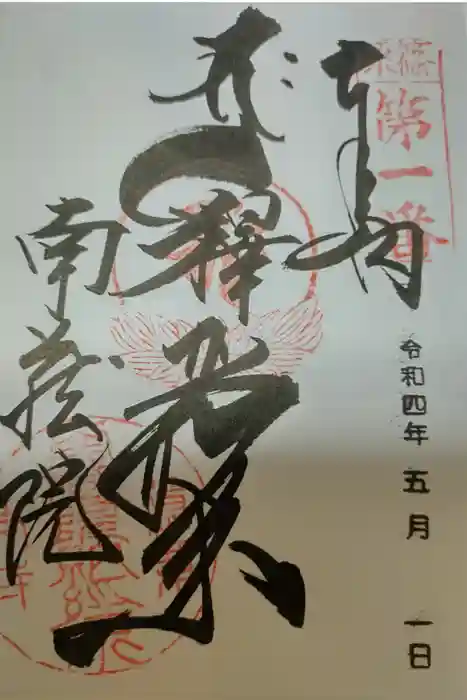 篠栗
第一番
奉拝
令和四年五月一日
釋迦如来
南蔵院